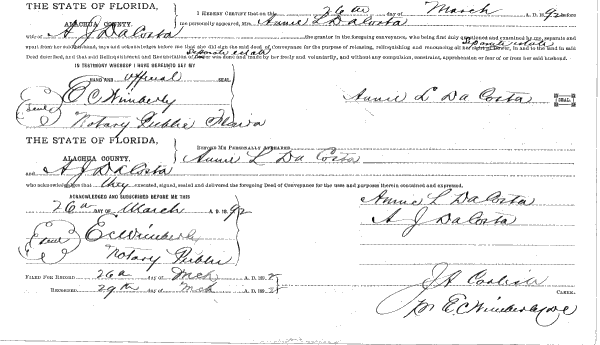 THE STATE OF FLORIDA,
ALACHUA COUNTY.
I HEREBY CERTIFY that on this 26th day of March A. D. 1892 before
me personally appeared, Mrs. Annie L DaCosta
wife of A J DaCosta the grantor in the foregoing conveyance, who being first duly examined by me, separate and
apart from her said husband, says and acknowledges before me that she did sign the said deed of conveyance for the purpose of relaxing, relinquishing and renouncing all her separate estate in and to the land in said
Deed described, and that said Relinquishment and Renunciation of separate estate was done and made by her freely and voluntarily, and without any compulsion, constraint, apprehension or fear of or from her said husband.
IN TESTIMONY WHEREOF I HAVE HEREUNTO SET MY
HAND AND official SEAL
Seal E C Wimberly
Annie L Da Costa SEAL
Notary Public
THE STATE OF FLORIDA,
ALACHUA COUNTY.
BEFORE ME PERSONALLY APPEARED
Annie L Da Costa
and A J DaCosta
who acknowledges that they executed, signed, sealed and delivered the foregoing Deed of Conveyance for the uses and purposes therein contained and expressed.
ACKNOWLEDGED AND SUBSCRIBED BEFORE ME THIS
26th DAY OF March A. D. 1892
Annie L DaCosta
A J DaCosta
Seal E C Wimberly
Notary Public
FILED FOR RECORD 26th day of Mch A. D. 1892
RECORDED 29th day of Mch A. D. 1892
J A Carlisle CLERK.
E C Wimberly DC